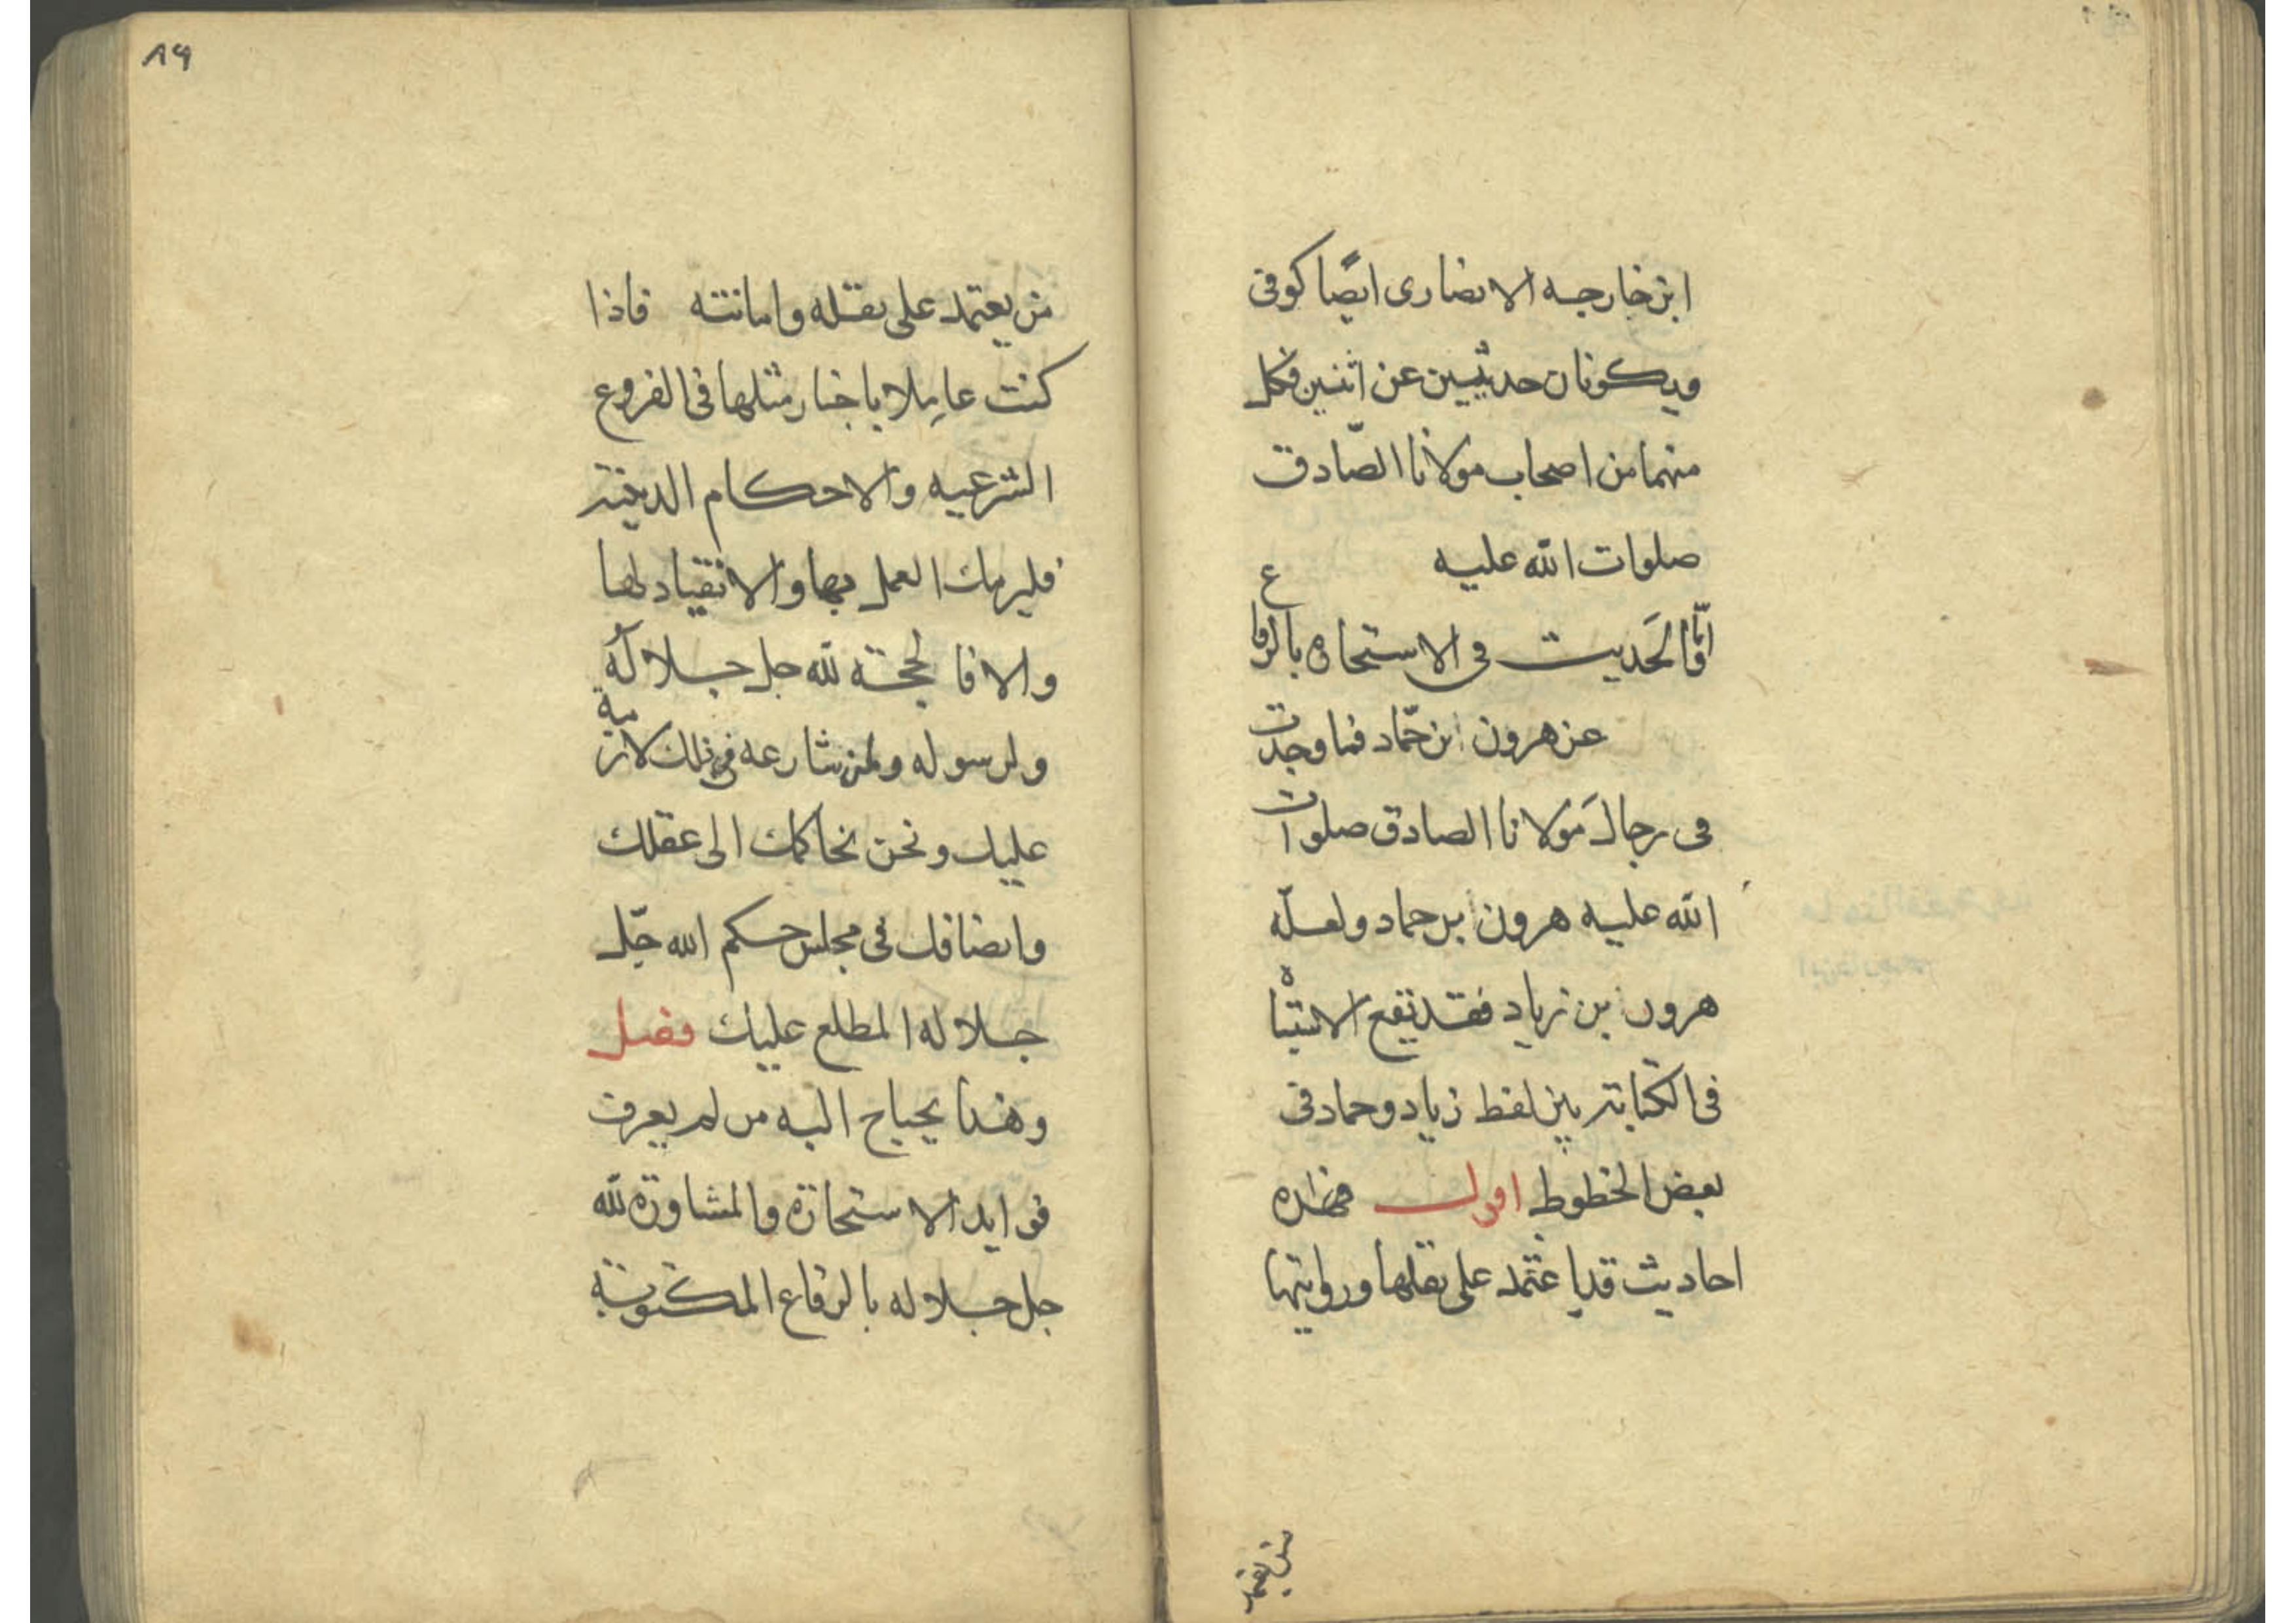 ابن خارجه الانصاری ایضًا کوفی
ویکونان حدیثین عن اثنین فکل
منهما من اصحاب مولانا الصّادق
صلوات الله علیه
امّا الحَدیث فی الاستخاره بالرقاع
عن هرون ابن حمّاد فما وجدت
فی رجال مَولانا الصادق صلوات
الله علیه هرون ابن حماد ولعلّه
هرون ابن زیاد فقد تقع الاشتباه
فی الکتابة بین لفظ زیاد وحماد فی
بعض الخطوط اقول فهذه
احادیث قد اعتمد علی نقلها وروایتها
من یعتمد
۸۹
من یعتمد علی نقله وامانته فاذا
کنت عاملا باخبار مثلها فی الفروع
الشرعیه والاحکام الدینیة
فلیزمك العمل بها والانقیاد لها
والا فالحجة لله جل جلالُه
ولرسوله ولمن شارعه فی ذلك لازمة
علیك ونحن نحاکمك الی عقلك
وانصافك فی مجلس حکم الله جّل
جلاله المطلع علیك فصل
وهذا یحتاج الیه من لم یعرف
فواید الاستخارة والمشاورة لله
جل جلاله بالرقاع المکتوبة